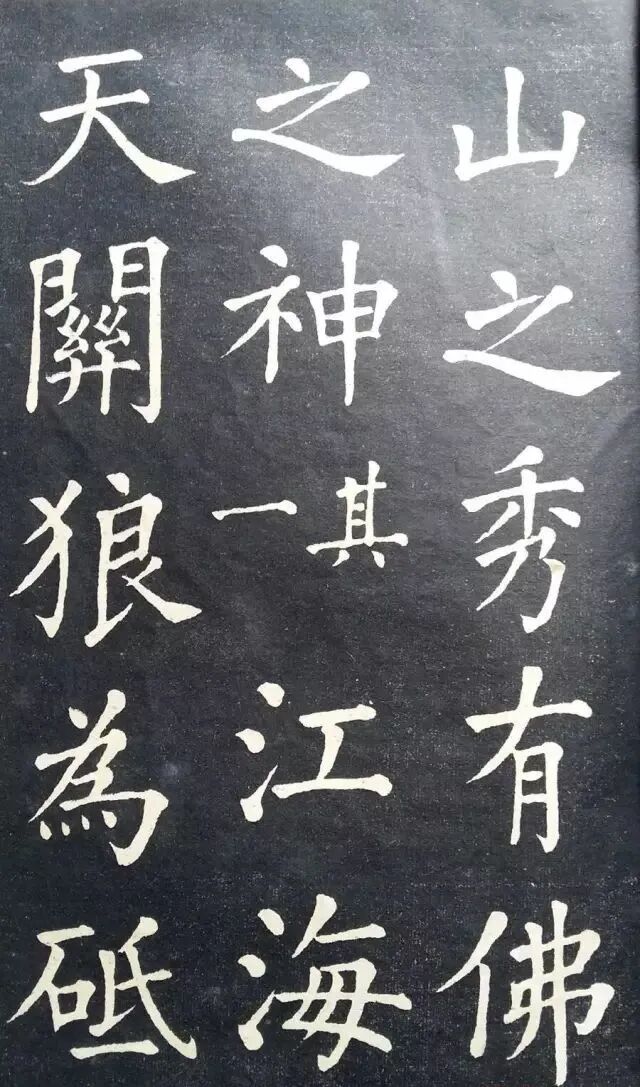 山之秀有佛
之神其一江海
天關狼為砥